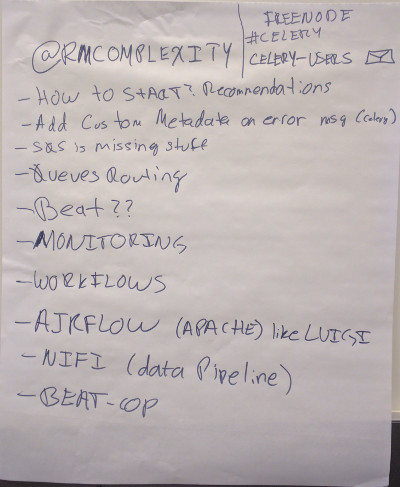 FREENODE
#CELERY
@RMCOMPLEXITY
CELERY-USERS
- How to StART? Recommendations
- Add Custom Metadata on error msg (celery)
- SQS is missing stuff
- Queues Routing
- Beat??
- MONITORING
- WORKFLOWS
- AIRFLOW (APACHE) like LUIGI
- NIFI (data Pipeline)
- BEAT-OP